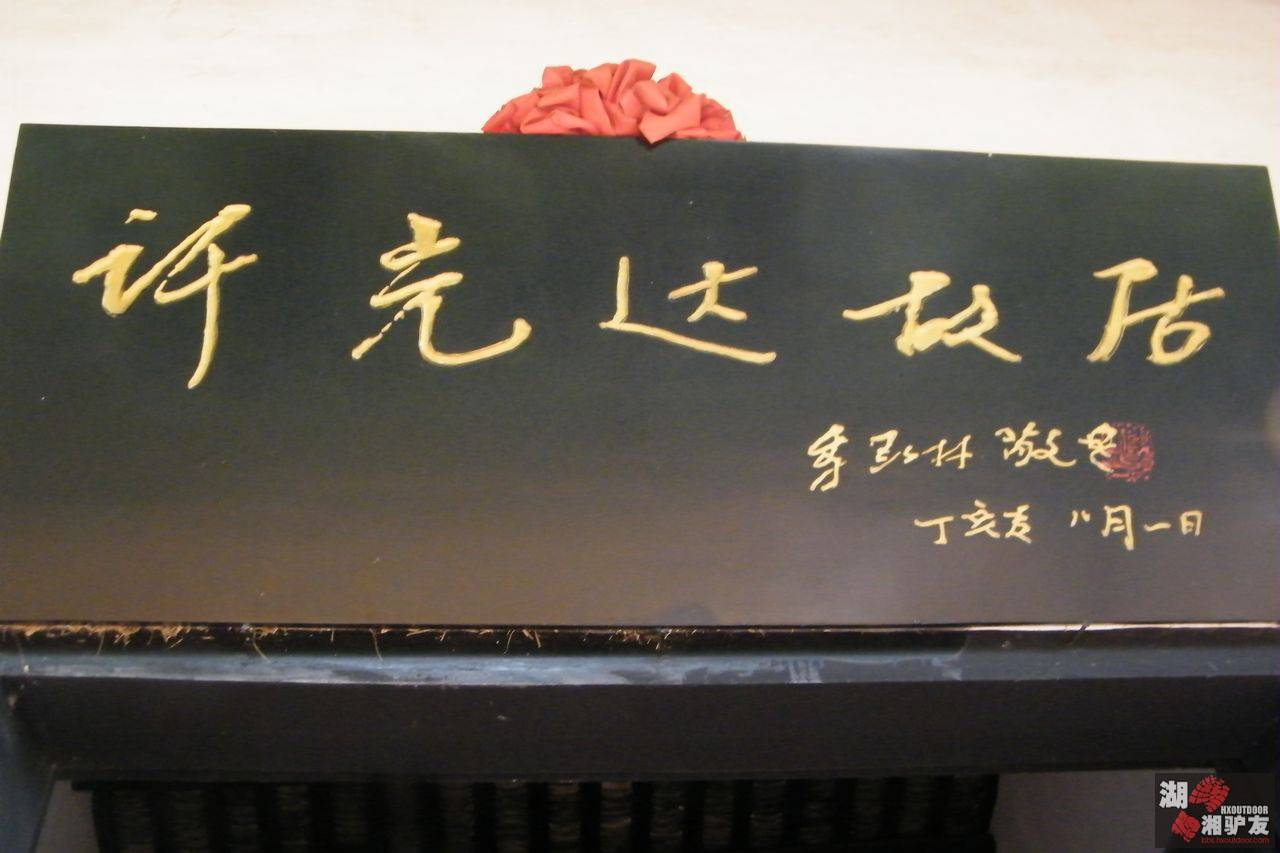 许光达故居
李励林 敬题
丁亥年 八月一日
湖
HXOUTDOOR
湘驴友
bbs.hxoutdoor.com